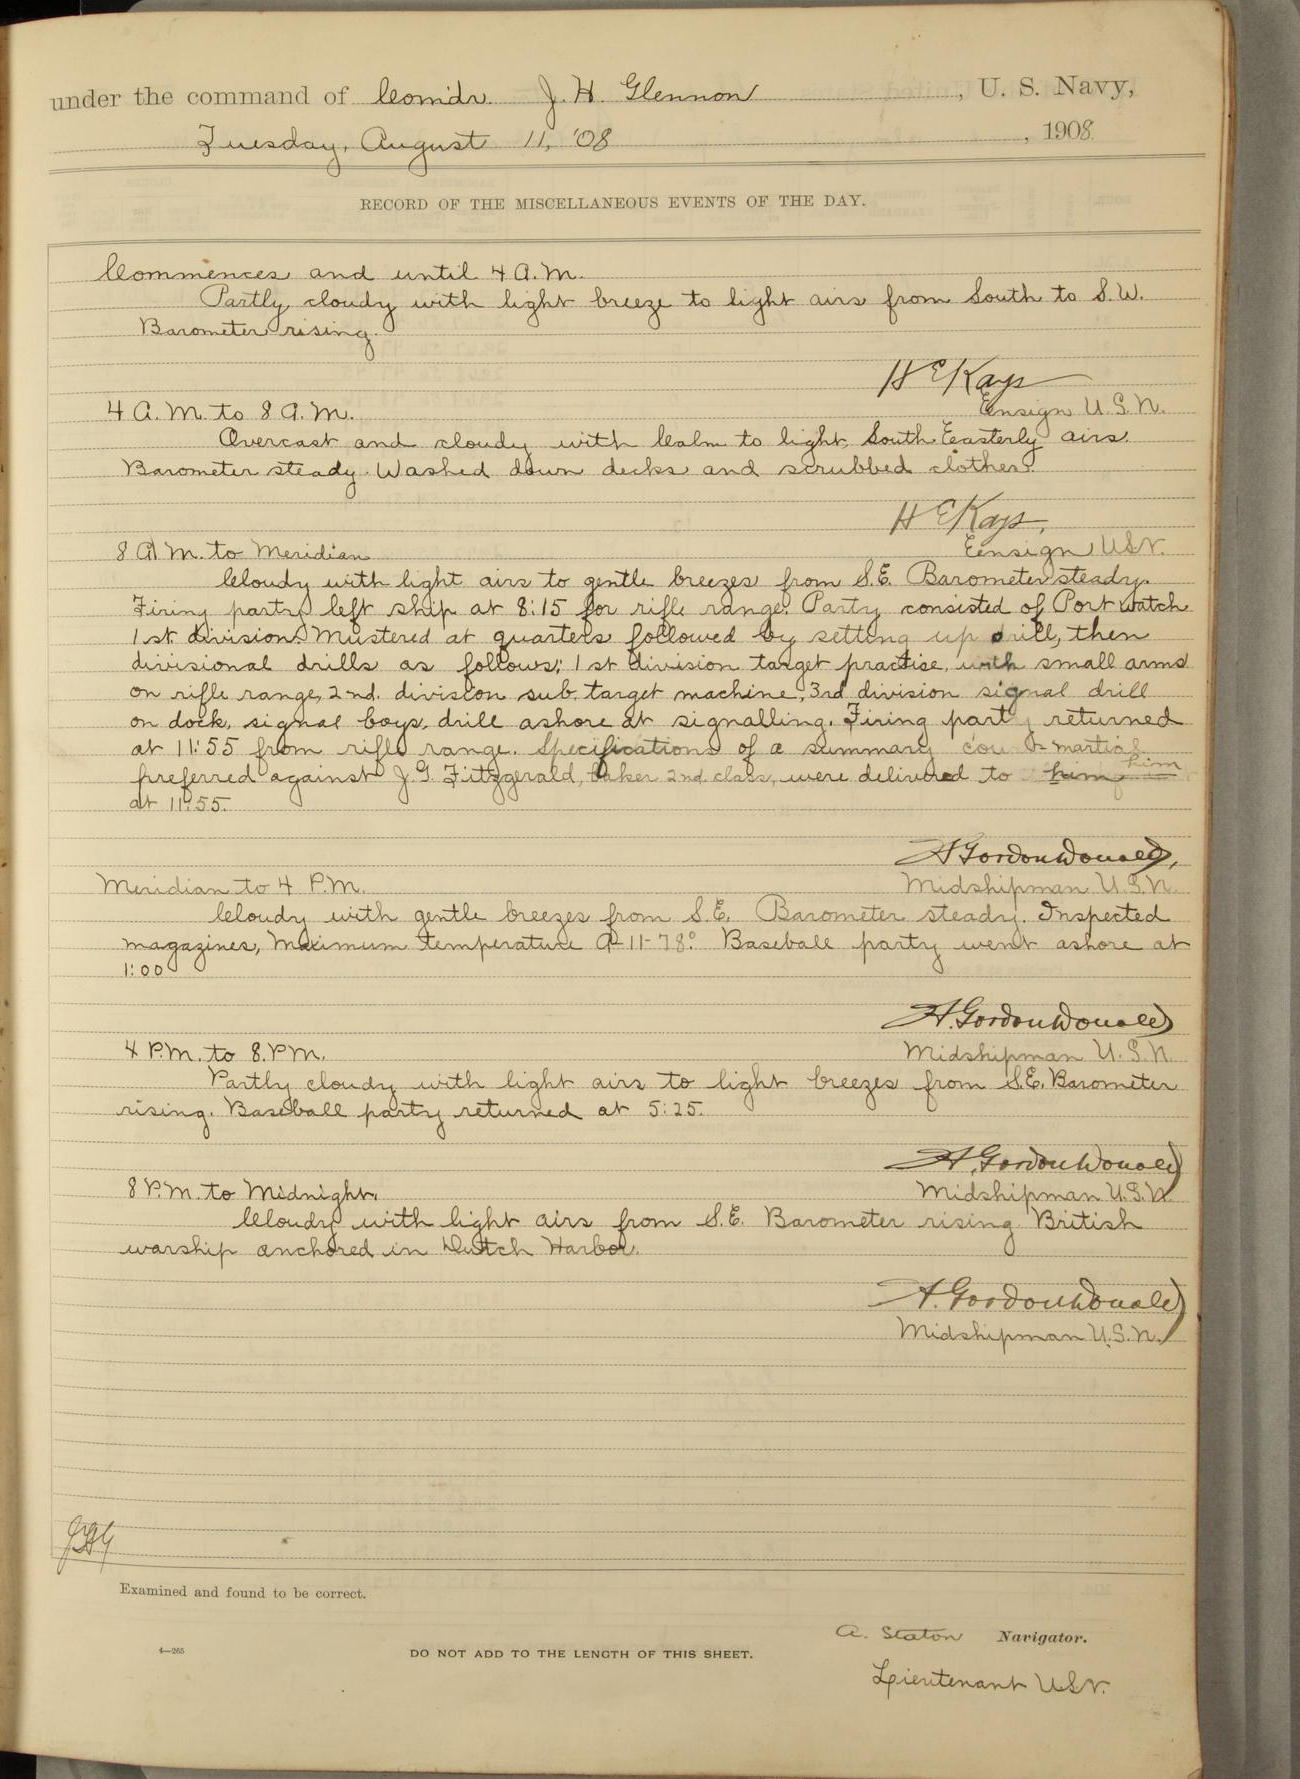 under the command of Comdr. J. H. Glennon, U. S. Navy,
Tuesday, August 11, '08, 1908
RECORD OF THE MISCELLANEOUS EVENTS OF THE DAY.
Commences and until 4 A.M.
Partly cloudy with light breeze to light airs from South to S.W.
Barometer rising.
H E Kays
Ensign U.S.N.
4 A.M. to 8 A.M.
Overcast and cloudy with Calm to light South Easterly airs.
Barometer steady. Washed down decks and scrubbed clothes.
H E Kays,
Eensign USN.
8 A.M. to Meridian
Cloudy with light airs to gentle breezes from S.E. Barometer steady.
Firing party left ship at 8:15 for rifle range. Party consisted of Port watch
1st division. Mustered at quarters followed by setting up drill, then
divisional drills as follows; 1st division target practise, with small arms
on rifle range, 2nd. division sub. target machine, 3rd division signal drill
on dock, signal boys, drill ashore at signalling. Firing party returned
at 11:55 from rifle range. Specifications of a summary court-martial
preferred against J.G. Fitzgerald, baker 2nd. class, were delivered to him him
at 11:55.
A Gordon Donald,
Midshipman U.S.N.
Meridian to 4 P.M.
Cloudy with gentle breezes from S.E. Barometer steady. Inspected
magazines, Maximum temperature A-11-78°. Baseball party went ashore at
1:00
A. Gordon Donald
Midshipman U.S.N.
4 P.M. to 8. P.M.
Partly cloudy with light airs to light breezes from S.E. Barometer
rising. Baseball party returned at 5:25.
A. Gordon Donald
Midshipman U.S.N.
8 P.M. to Midnight.
Cloudy with light airs from S.E. Barometer rising. British
warship anchored in Dutch Harbor.
A. Gordon Donald
Midshipman U.S.N.
Examined and found to be correct.
A. Staton Navigator.
4—265
DO NOT ADD TO THE LENGTH OF THIS SHEET.
Lieutenant USN.